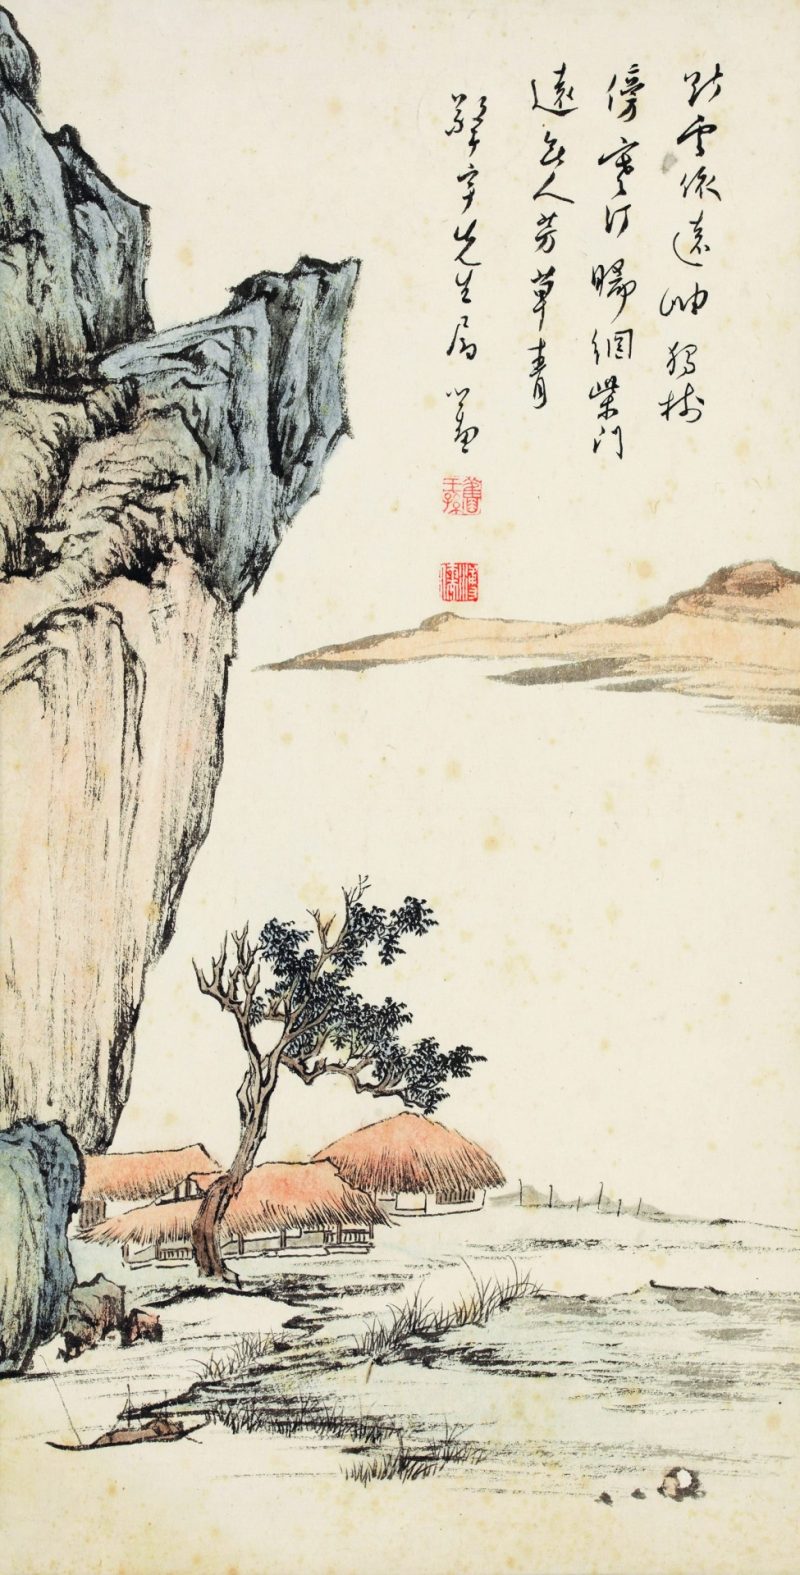 斷雲依遠岫獨樹
傍寒汀晞網柴門
遠無人芳草青
宇先生屬 心畬
舊王孫
溥儒